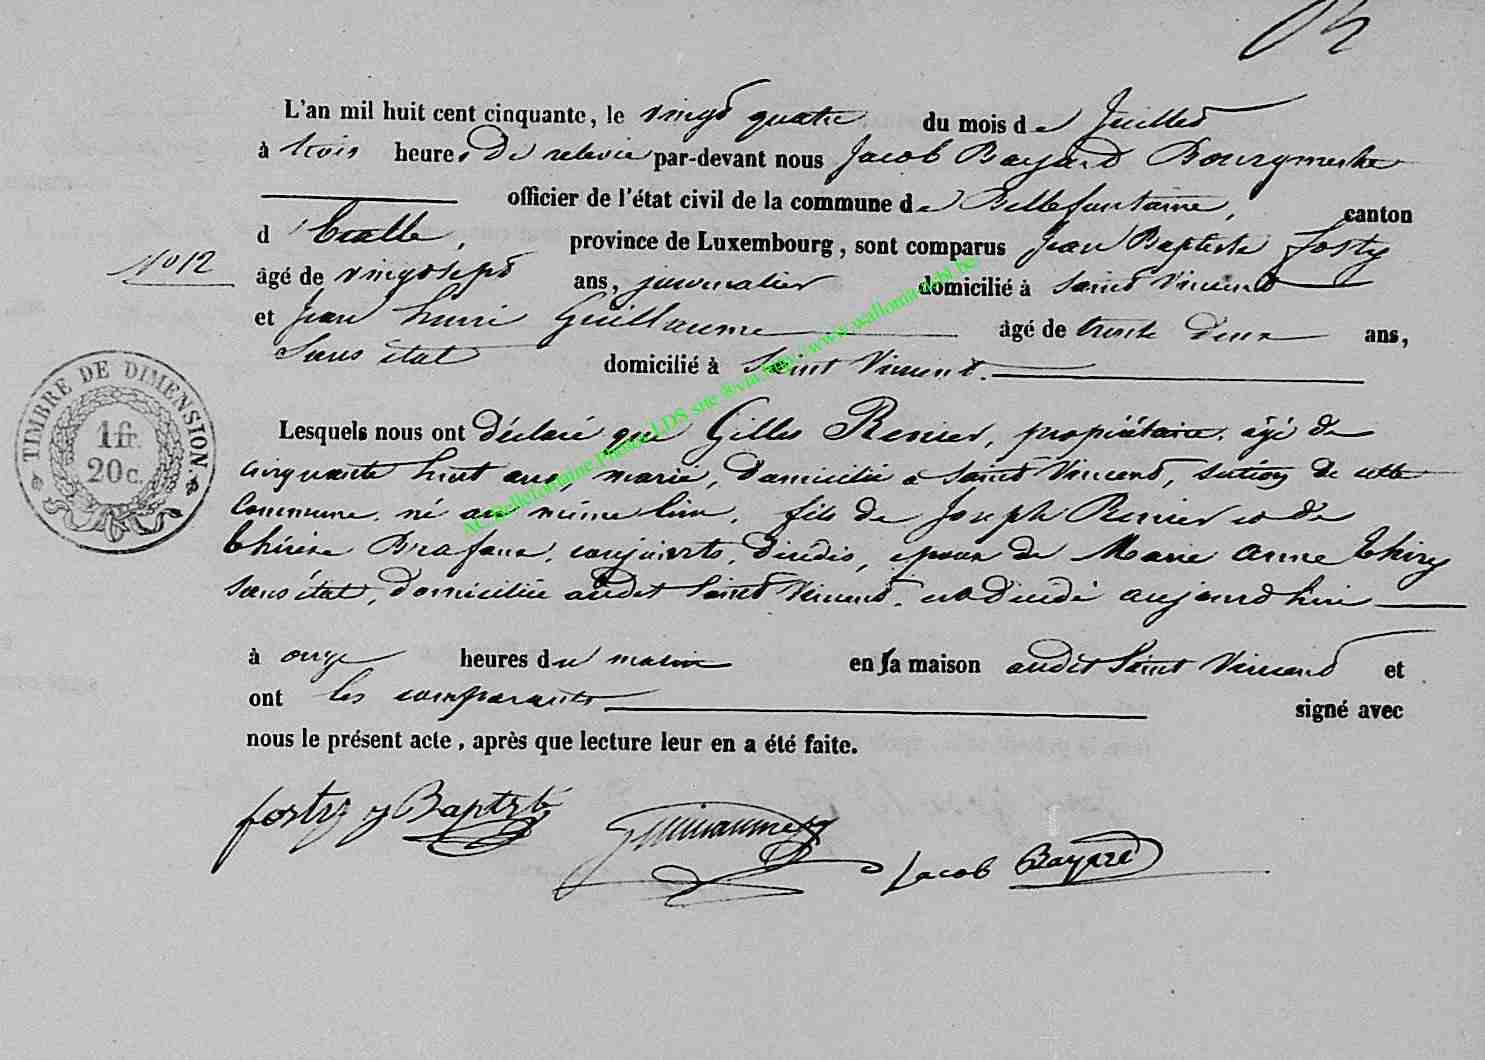 L'an mil huit cent cinquante, le vingt quatre du mois de Juillet
à trois heures de relevée par-devant nous Jacob Bayard Bourgmestre
officier de l'état civil de la commune de Bellefontaine, canton
d'Etalle, province de Luxembourg, sont comparus Jean Baptiste Fosty
No 12
âgé de vingt sept ans, journalier domicilié à Saint Vincent
et Jean henri Guillaume âgé de trente deux ans,
Sans état domicilié à Saint Vincent.
TIMBRE DE DIMENSION
1 fr.
20 c.
Lesquels nous ont déclaré que Gilles Renier, propriétaire, âgé de
cinquante huit ans, marié, domicilié à Saint Vincent, section de cette
Commune, né au même lieu, fils de Joseph Renier et de
thérèse Brafaux, conjoints, décédés, époux de Marie anne thiry
sans état, domiciliée audit Saint Vincent, est décédé aujourd'hui
à onze heures du matin en sa maison audit Saint Vincent et
ont les comparants signé avec
nous le présent acte, après que lecture leur en a été faite.
fosty j Baptste
Guillaume
Jacob Bayard
AC Bellefontaine Photos LDS site &via http://www.wallonica